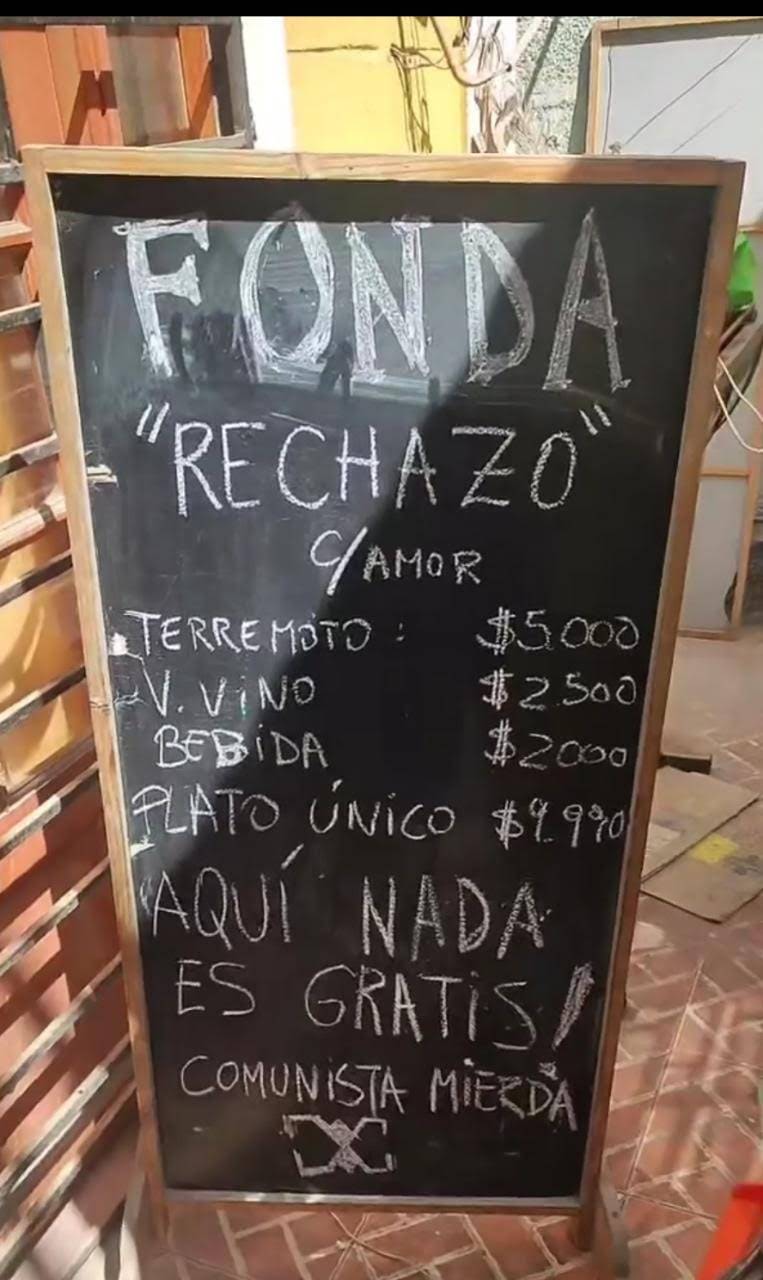 FONDA
"RECHAZO"
C/AMOR
TERREMOTO : $5.000
V. ViNO $2500
BEBiDA $2000
PLATO ÚNiCO $9.990
"AQUÍ NADA
ES GRATiS!
COMUNiSTA MiERDA